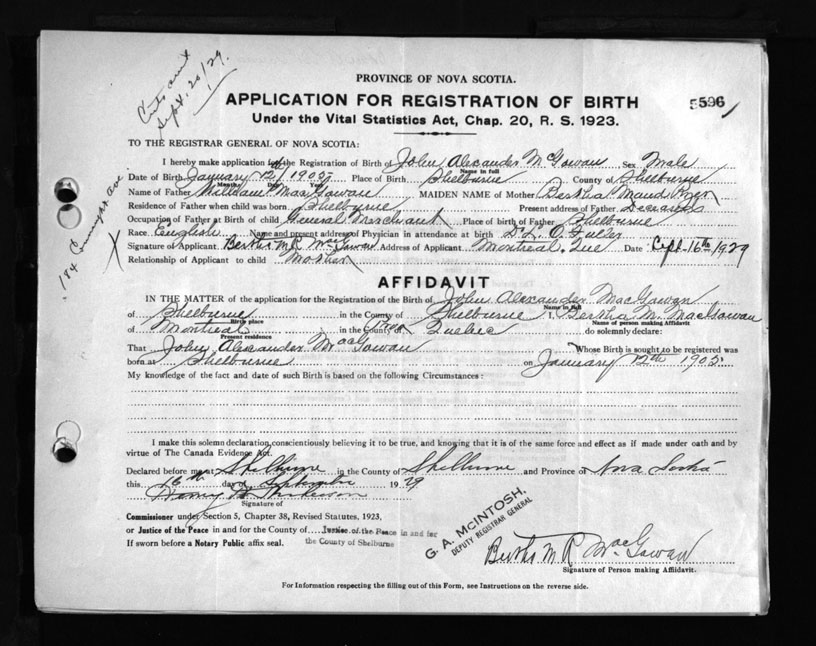 Sept. 20/29.
PROVINCE OF NOVA SCOTIA.
APPLICATION FOR REGISTRATION OF BIRTH
5596
Under the Vital Statistics Act, Chap. 20, R. S. 1923.
TO THE REGISTRAR GENERAL OF NOVA SCOTIA:
I hereby make application for the Registration of Birth of John Alexander McGowan Sex Male
Name in full
Date of Birth January 12th 1905 Place of Birth Shelburne County of Shelburne
Month Day Year
Name of Father William MacGowan MAIDEN NAME of Mother Bertha Maud
Residence of Father when child was born Shelburne Present address of Father Deceased
Occupation of Father at Birth of child General Merchant Place of birth of Father Shelburne
Race English Name and present address of Physician in attendance at birth Dr. L. O. Fuller
Signature of Applicant Bertha M. R. MacGowan Address of Applicant Montreal. Que Date Sept-16th/1929
Relationship of Applicant to child Mother
AFFIDAVIT
IN THE MATTER of the application for the Registration of the Birth of John Alexander MacGowan
Name in full
of Shelburne in the County of Shelburne I, Bertha M. MacGowan
Birth place
Name of person making Affidavit
of Montreal in the County of Quebec do solemnly declare:
Present residence
That John Alexander MacGowan Whose Birth is sought to be registered was
born at Shelburne on January 12th 1905
My knowledge of the fact and date of such Birth is based on the following Circumstances:
I make this solemn declaration conscientiously believing it to be true, and knowing that it is of the same force and effect as if made under oath and by
virtue of The Canada Evidence Act.
Declared before me at Shelburne in the County of Shelburne and Province of Nova Scotia
this 16th day of September 1929
Signature of
Commissioner under Section 5, Chapter 38, Revised Statutes, 1923,
or Justice of the Peace in and for the County of Justice of the Peace in and for
the County of Shelburne
If sworn before a Notary Public affix seal.
G. A. McINTOSH,
DEPUTY REGISTRAR GENERAL
Bertha M R MacGowan
Signature of Person making Affidavit.
For Information respecting the filling out of this Form, see Instructions on the reverse side.